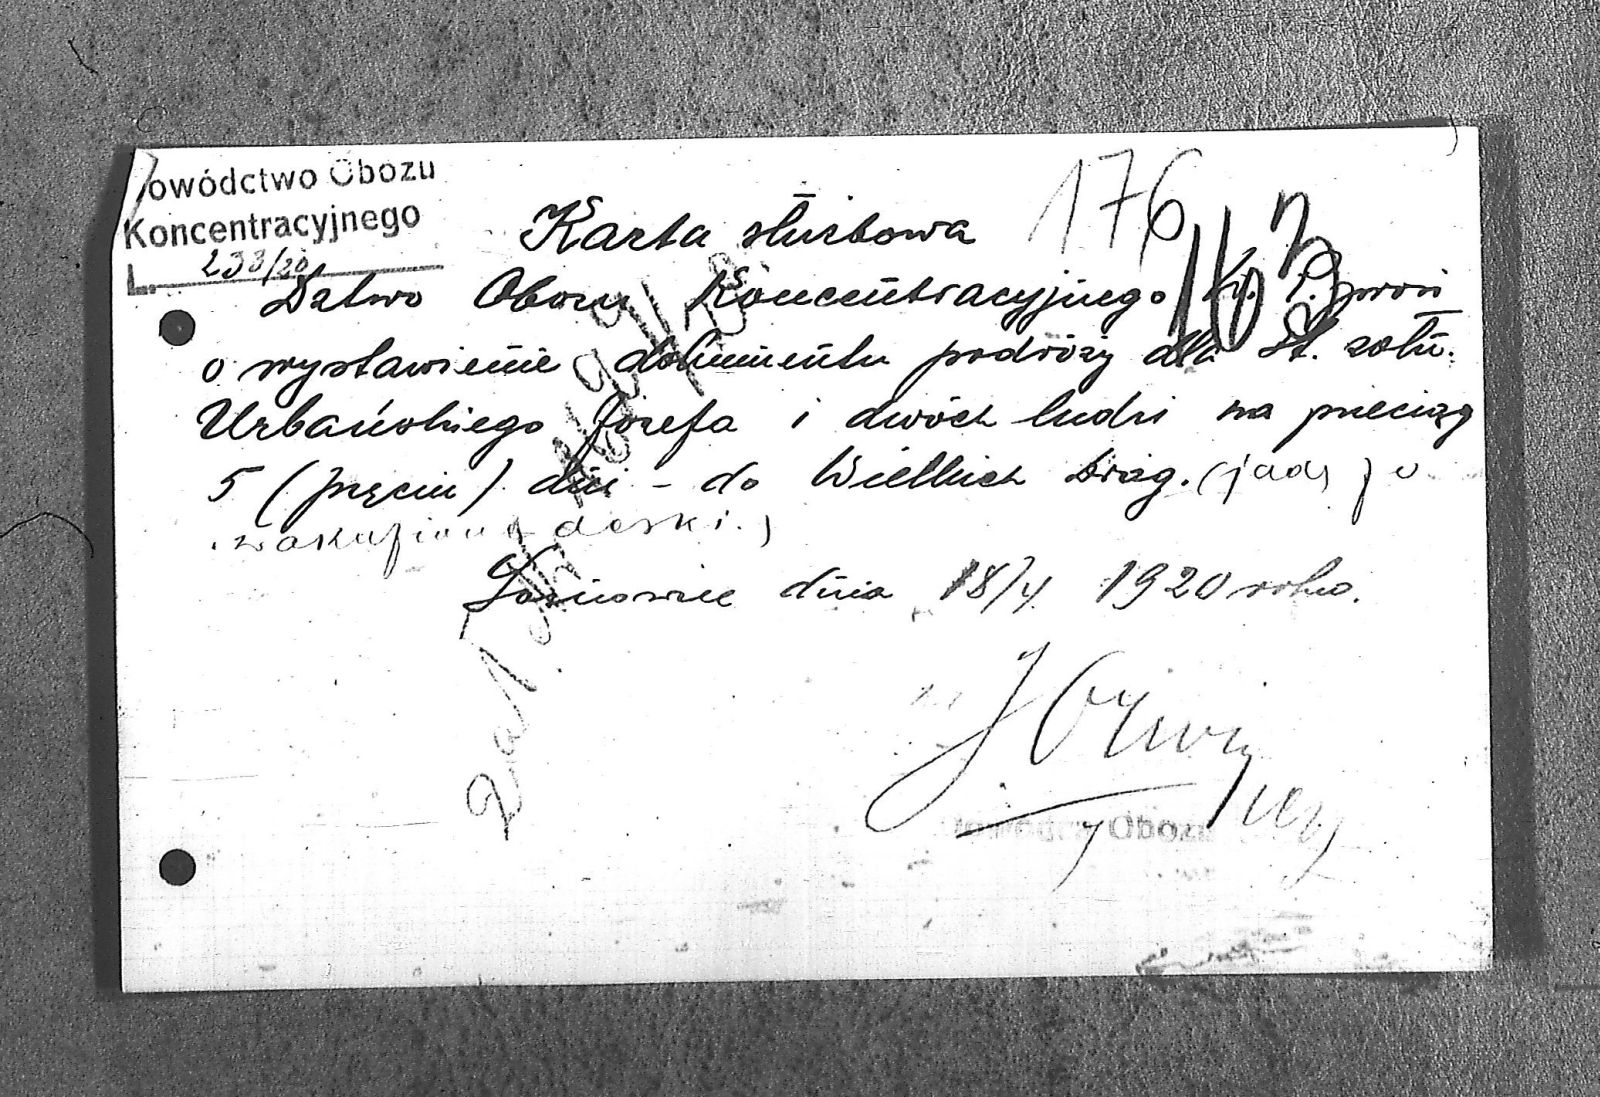 Dowództwo Obozu
Koncentracyjnego
L. 233/20
176
Karta służbowa
163
Dztwo Obozu Koncentracyjnego prosi
o wystawienie dokumentu podróży dla St. żołn.
Urbańskiego Józefa i dwóch ludzi na przeciąg
5 (pięciu) dni - do Wielkich Dróg. (jadą po
zakupione deski.)
dnia 18/4 1920 roku.
Obozu